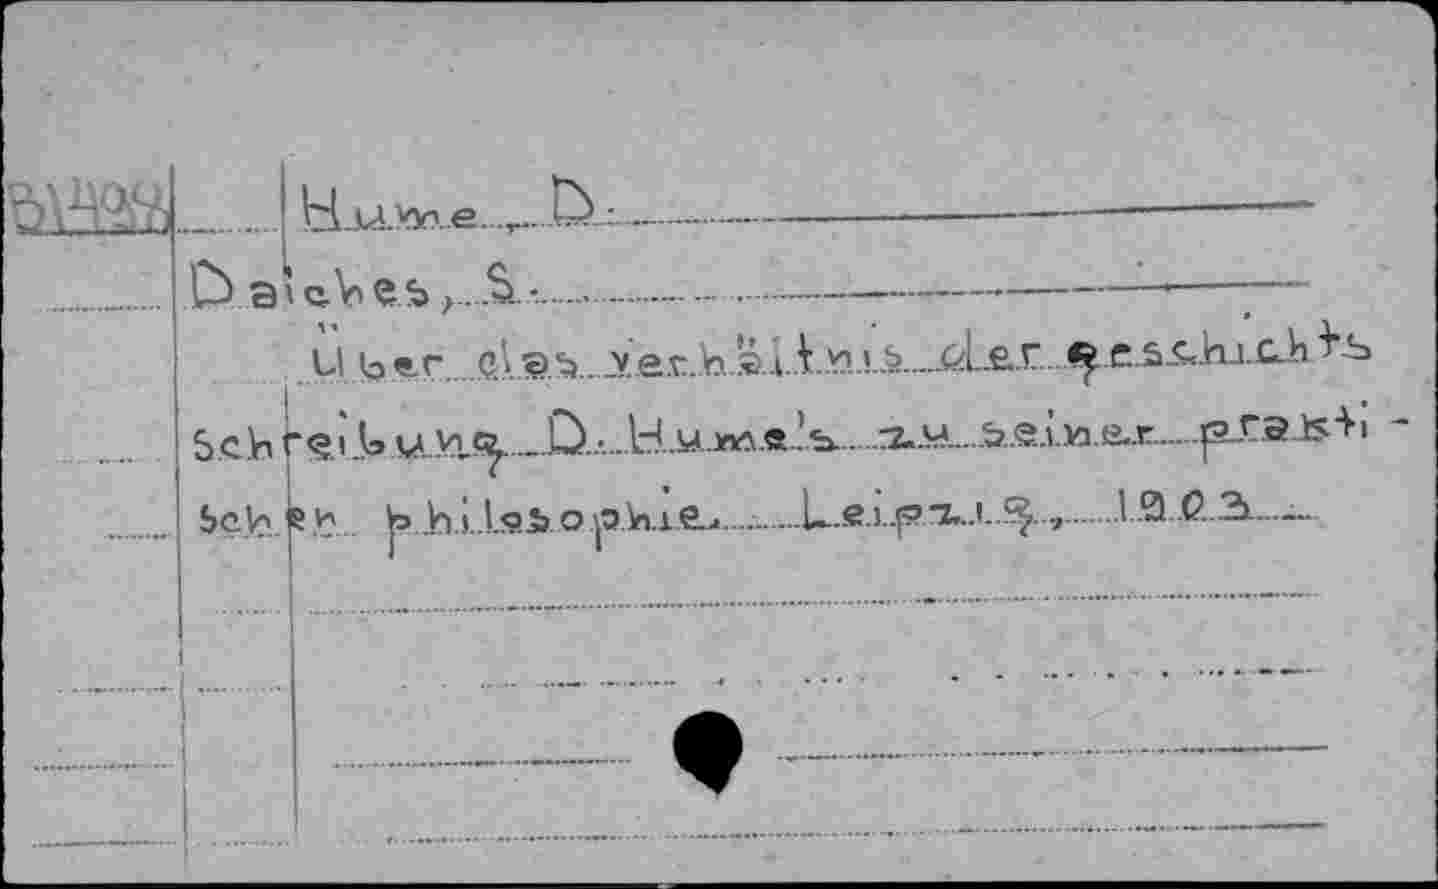 Hume, D.
Daiches, S.
Über das verhältnis der geschichts
schreibung D. Hume's zu seiner prakti-
schen philosophie. Leipzig, 1903